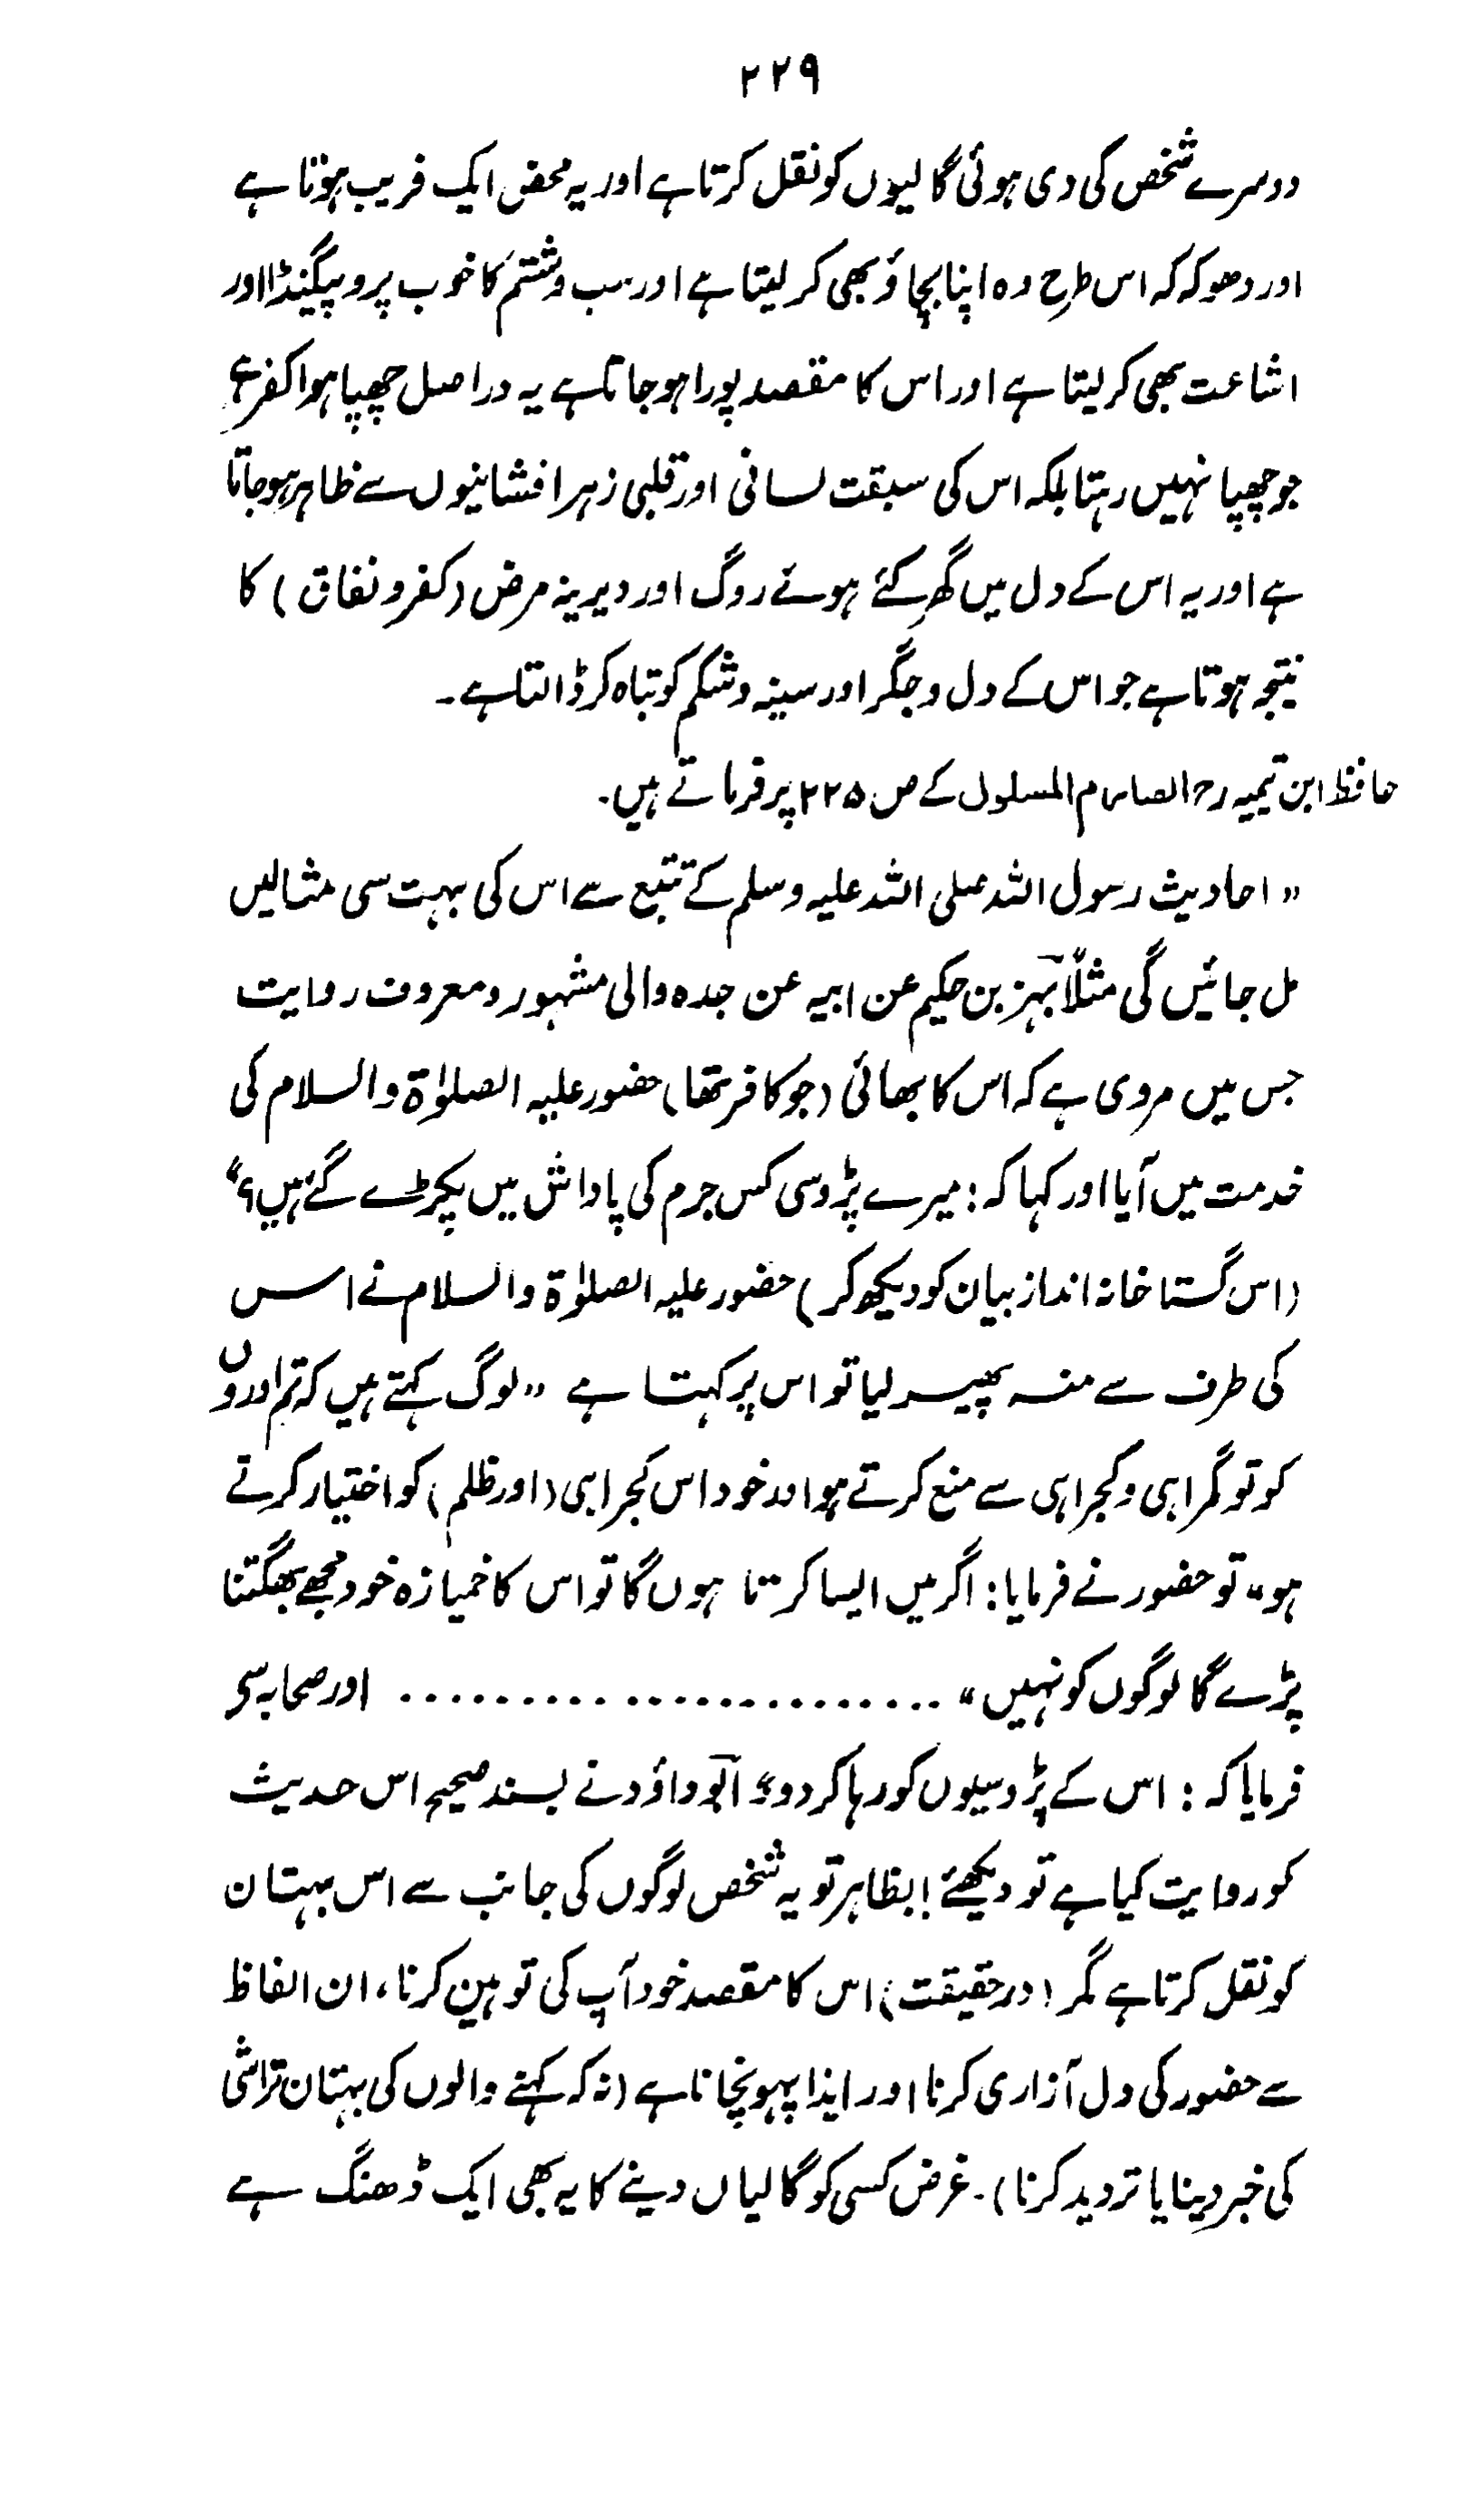 ۲۲۹
دوسرے شخص کی دی ہوئی گالیوں کو نقل کرتا ہے اور یہ محض ایک فریب ہوتا ہے
اور دھوکہ کہ اس طرح وہ اپنا بچاؤ بھی کر لیتا ہے اور سب و شتم کا خوب پروپیگنڈا اور
اشاعت بھی کر لیتا ہے اور اس کا مقصد پورا ہو جاتا ہے یہ دراصل چھپا ہوا کفر ہے
جو چھپا نہیں رہتا بلکہ اس کی سبقت لسانی اور قلبی زہر افشانیوں سے ظاہر ہو جاتا
ہے اور یہ اس کے دل میں گھر کئے ہوئے روگ اور دیرینہ مرض (کفر و نفاق) کا
نتیجہ ہوتا ہے جو اس کے دل و جگر اور سینہ و شکم کو تباہ کر ڈالتا ہے۔
حافظ ابن تیمیہ رح الصارم المسلول کے ص ۲۲۵ پر فرماتے ہیں۔
"احادیث رسول اللہ صلی اللہ علیہ وسلم کے تتبع سے اس کی بہت سی مثالیں
مل جائیں گی مثلاً بہز بن حکیم عن ابیہ عن جدہ والی مشہور و معروف روایت
جس میں مروی ہے کہ اس کا بھائی (جو کافر تھا) حضور علیہ الصلوٰۃ والسلام کی
خدمت میں آیا اور کہا کہ: میرے پڑوسی کس جرم کی پاداش میں پکڑے گئے ہیں؟"
(اس گستاخانہ انداز بیان کو دیکھ کر) حضور علیہ الصلوٰۃ والسلام نے اس
کی طرف سے منہ پھیر لیا تو اس پر کہتا ہے "لوگ کہتے ہیں کہ تم اوروں
کو تو گمراہی و کجراہی سے منع کرتے ہو اور خود اس کجراہی (اور ظلم) کو اختیار کرتے
ہو" تو حضور نے فرمایا: اگر میں ایسا کرتا ہوں گا تو اس کا خمیازہ خود مجھے بھگتنا
پڑے گا لوگوں کو نہیں" ......................... اور صحابہ سے
فرمایا کہ: اس کے پڑوسیوں کو رہا کر دو" ابوداؤد نے بسند صحیح اس حدیث
کو روایت کیا ہے تو دیکھئے! بظاہر تو یہ شخص لوگوں کی جانب سے اس بہتان
کو نقل کرتا ہے مگر (درحقیقت) اس کا مقصد خود آپ کی توہین کرنا، ان الفاظ
سے حضور کی دل آزاری کرنا اور ایذا پہونچانا ہے (نہ کہ کہنے والوں کی بہتان تراشی
کی خبر دینا یا تردید کرنا)۔ غرض کسی کو گالیاں دینے کا یہ بھی ایک ڈھنگ ہے